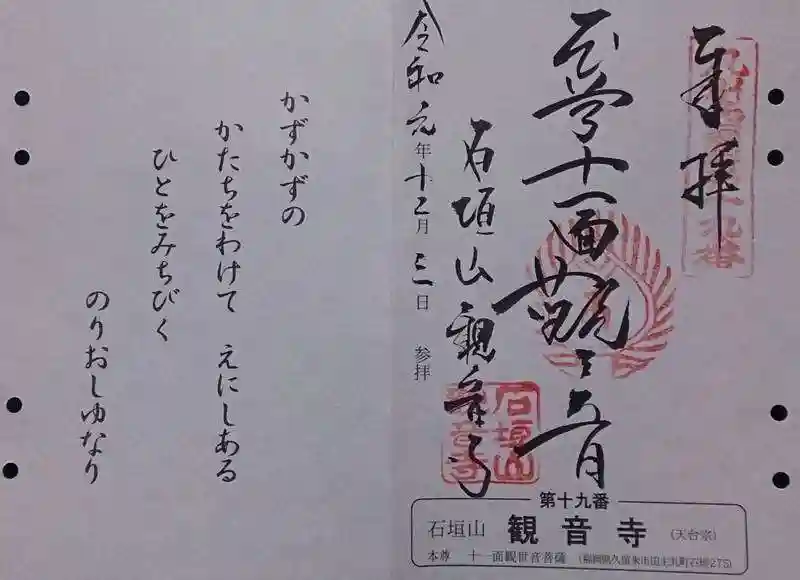 奉拝
十一面
石垣山観音寺
令和元年十二月三日 参拝
石垣山
観音寺
第十九番
石垣山 観音寺 (天台宗)
本尊 十一面観世音菩薩 (福岡県久留米市田主丸町石垣275)
かずかずの
かたちをわけて えにしある
ひとをみちびく
のりおしゆなり